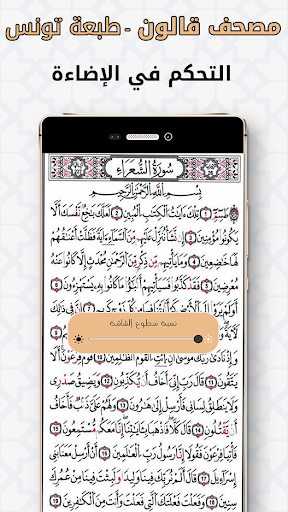 مصحف قالون - طبعة تونس
التحكم في الإضاءة
سُورَةُ الشُّعَرَاءِ
بِسْمِ اللَّهِ الرَّحْمَٰنِ الرَّحِيمِ
طَسِٓمِّٓ 1 تِلْكَ ءَايَٰتُ الْكِتَٰبِ الْمُبِينِ 2 لَعَلَّكَ بَٰخِعٌ نَّفْسَكَ أَلَّا
يَكُونُوا مُؤْمِنِينَ 3 إِن نَّشَأْ نُنَزِّلْ عَلَيْهِم مِّنَ السَّمَآءِ ايَةً فَظَلَّتْ أَعْنَٰقُهُمْ
لَهَا خَٰضِعِينَ 4 وَمَا يَأْتِيهِم مِّن ذِكْرٍ مِّنَ الرَّحْمَٰنِ مُحْدَثٍ إِلَّا كَانُوا عَنْهُ
مُعْرِضِينَ 5 فَقَدْ كَذَّبُوا فَسَيَأْتِيهِمُ أَنۢبَٰٓؤُا مَا كَانُوا بِهِ يَسْتَهْزِءُونَ 6
نسبة سطوع الشاشة
وَإِذْ نَادَىٰ رَبُّكَ مُوسَىٰ أَنِ ائْتِ الْقَوْمَ الظَّٰلِمِينَ 9 قَوْمَ فِرْعَوْنَ أَلَا
يَتَّقُونَ 10 قَالَ رَبِّ إِنِّيَ أَخَافُ أَن يُكَذِّبُونِ 11 وَيَضِيقُ صَدْرِي
وَلَا يَنطَلِقُ لِسَانِي فَأَرْسِلِ إِلَىٰ هَٰرُونَ 12 وَلَهُمْ عَلَيَّ ذَنۢبٌ فَأَخَافُ
أَن يَقْتُلُونِ 13 قَالَ كَلَّا فَاذْهَبَا بِـَٔايَٰتِنَا إِنَّا مَعَكُم مُّسْتَمِعُونَ 14
فَأْتِيَا فِرْعَوْنَ فَقُولَا إِنَّا رَسُولُ رَبِّ الْعَٰلَمِينَ 15 أَنَ أَرْسِلْ مَعَنَا بَنِي
إِسْرَآءِيلَ 16 قَالَ أَلَمْ نُرَبِّكَ فِينَا وَلِيدًا وَلَبِثْتَ فِينَا مِنْ عُمُرِكَ
سِنِينَ 17 وَفَعَلْتَ فَعْلَتَكَ الَّتِي فَعَلْتَ وَأَنتَ مِنَ الْكَٰفِرِينَ 18